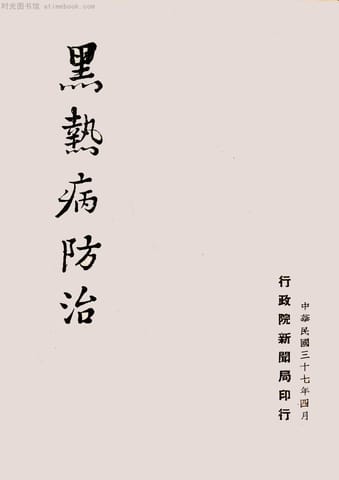 时光图书馆 - atimebook.com
黑熱病防治
中華民國三十七年四月
行政院新聞局印行